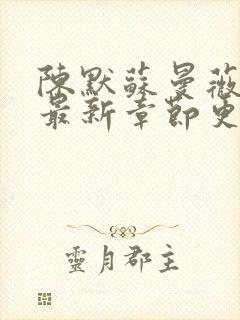 陳默蘇曼薇
最新章節更
靈月郡主